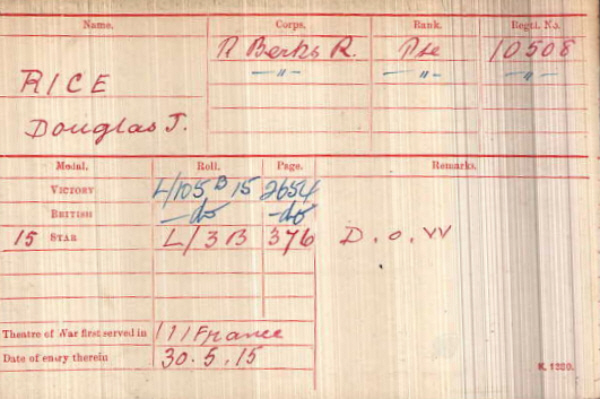 Name. Corps. Rank. Regtl. No.
R Berks R. Pte 10508
RICE —"— —"— —"—
Douglas J.
Medal. Roll. Page. Remarks.
VICTORY L/105 B 15 2654
BRITISH —do —do
15 STAR L/3 B 376 D.o.W
Theatre of War first served in (1) France
Date of entry therein 30.5.15
K. 1380.